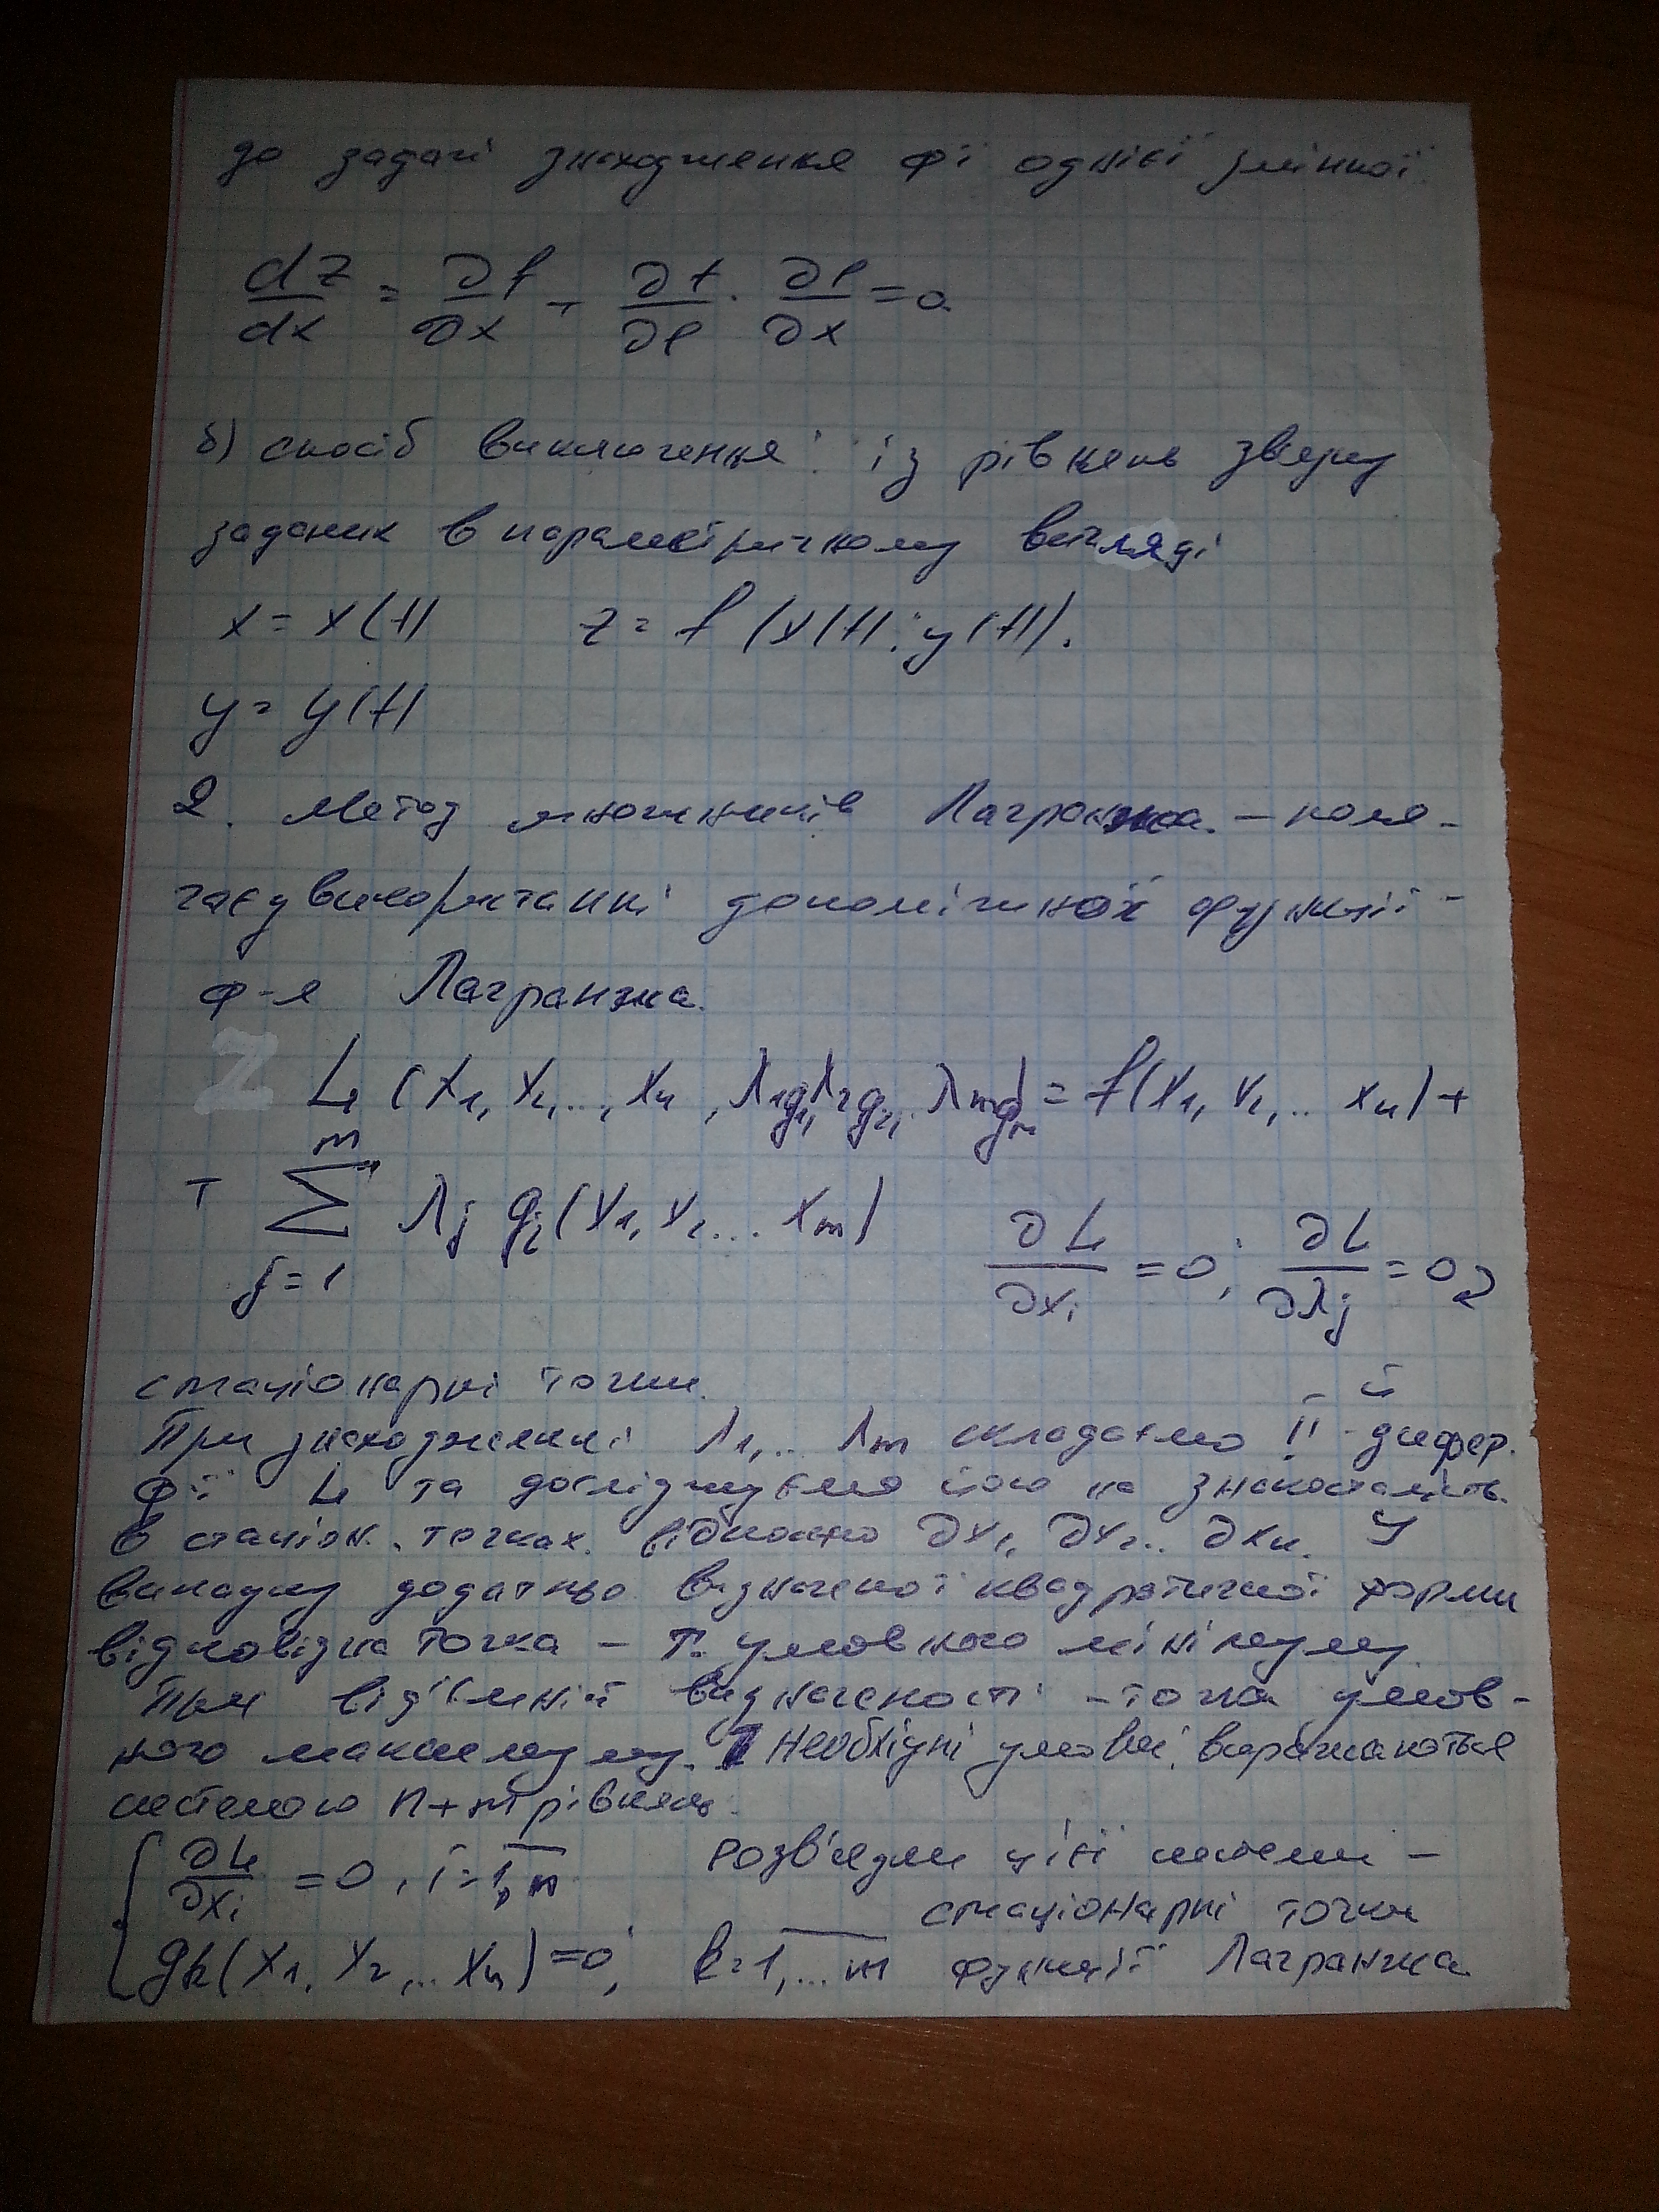 до задачі знаходження ф-ї однієї змінної.
dz/dx = ∂f/∂x + ∂f/∂φ · ∂φ/∂x = 0
б) спосіб виключення: із рівнянь зв'язку
заданих в параметричному вигляді
x = x(t)    z = f(x(t); y(t)).
y = y(t)
2. Метод множників Лагранжа. – поля-
гає у використанні допоміжної функції –
ф-я Лагранжа.
L (x₁, x₂, ..., xₙ, λ₁g₁, λ₂g₂, .. λₘgₘ) = f(x₁, x₂, .. xₙ) +
+ ∑ⱼ₌₁ᵐ λⱼ gⱼ(x₁, x₂ ... xₘ)    ∂L/∂xᵢ = 0; ∂L/∂λⱼ = 0
стаціонарні точки.
При знаходженні λ₁, .. λₘ складаємо II-й дифер.
ф-ї L та досліджуємо його на знакосталість
в стаціон. точках. відносно ∂x₁, ∂x₂.. ∂xₙ. У
випадку додатньо визначеної квадратичної форми
відповідна точка – т. умовного мінімуму.
При від'ємній визначеності – точка умов-
ного максимуму. Необхідні умови, виражаються
системою n+m рівнянь.
{ ∂L/∂xᵢ = 0, i = 1, n    Розв'язки цієї системи –
стаціонарні точки
gₖ(x₁, x₂, ... xₙ) = 0, k = 1, ... m    функції Лагранжа